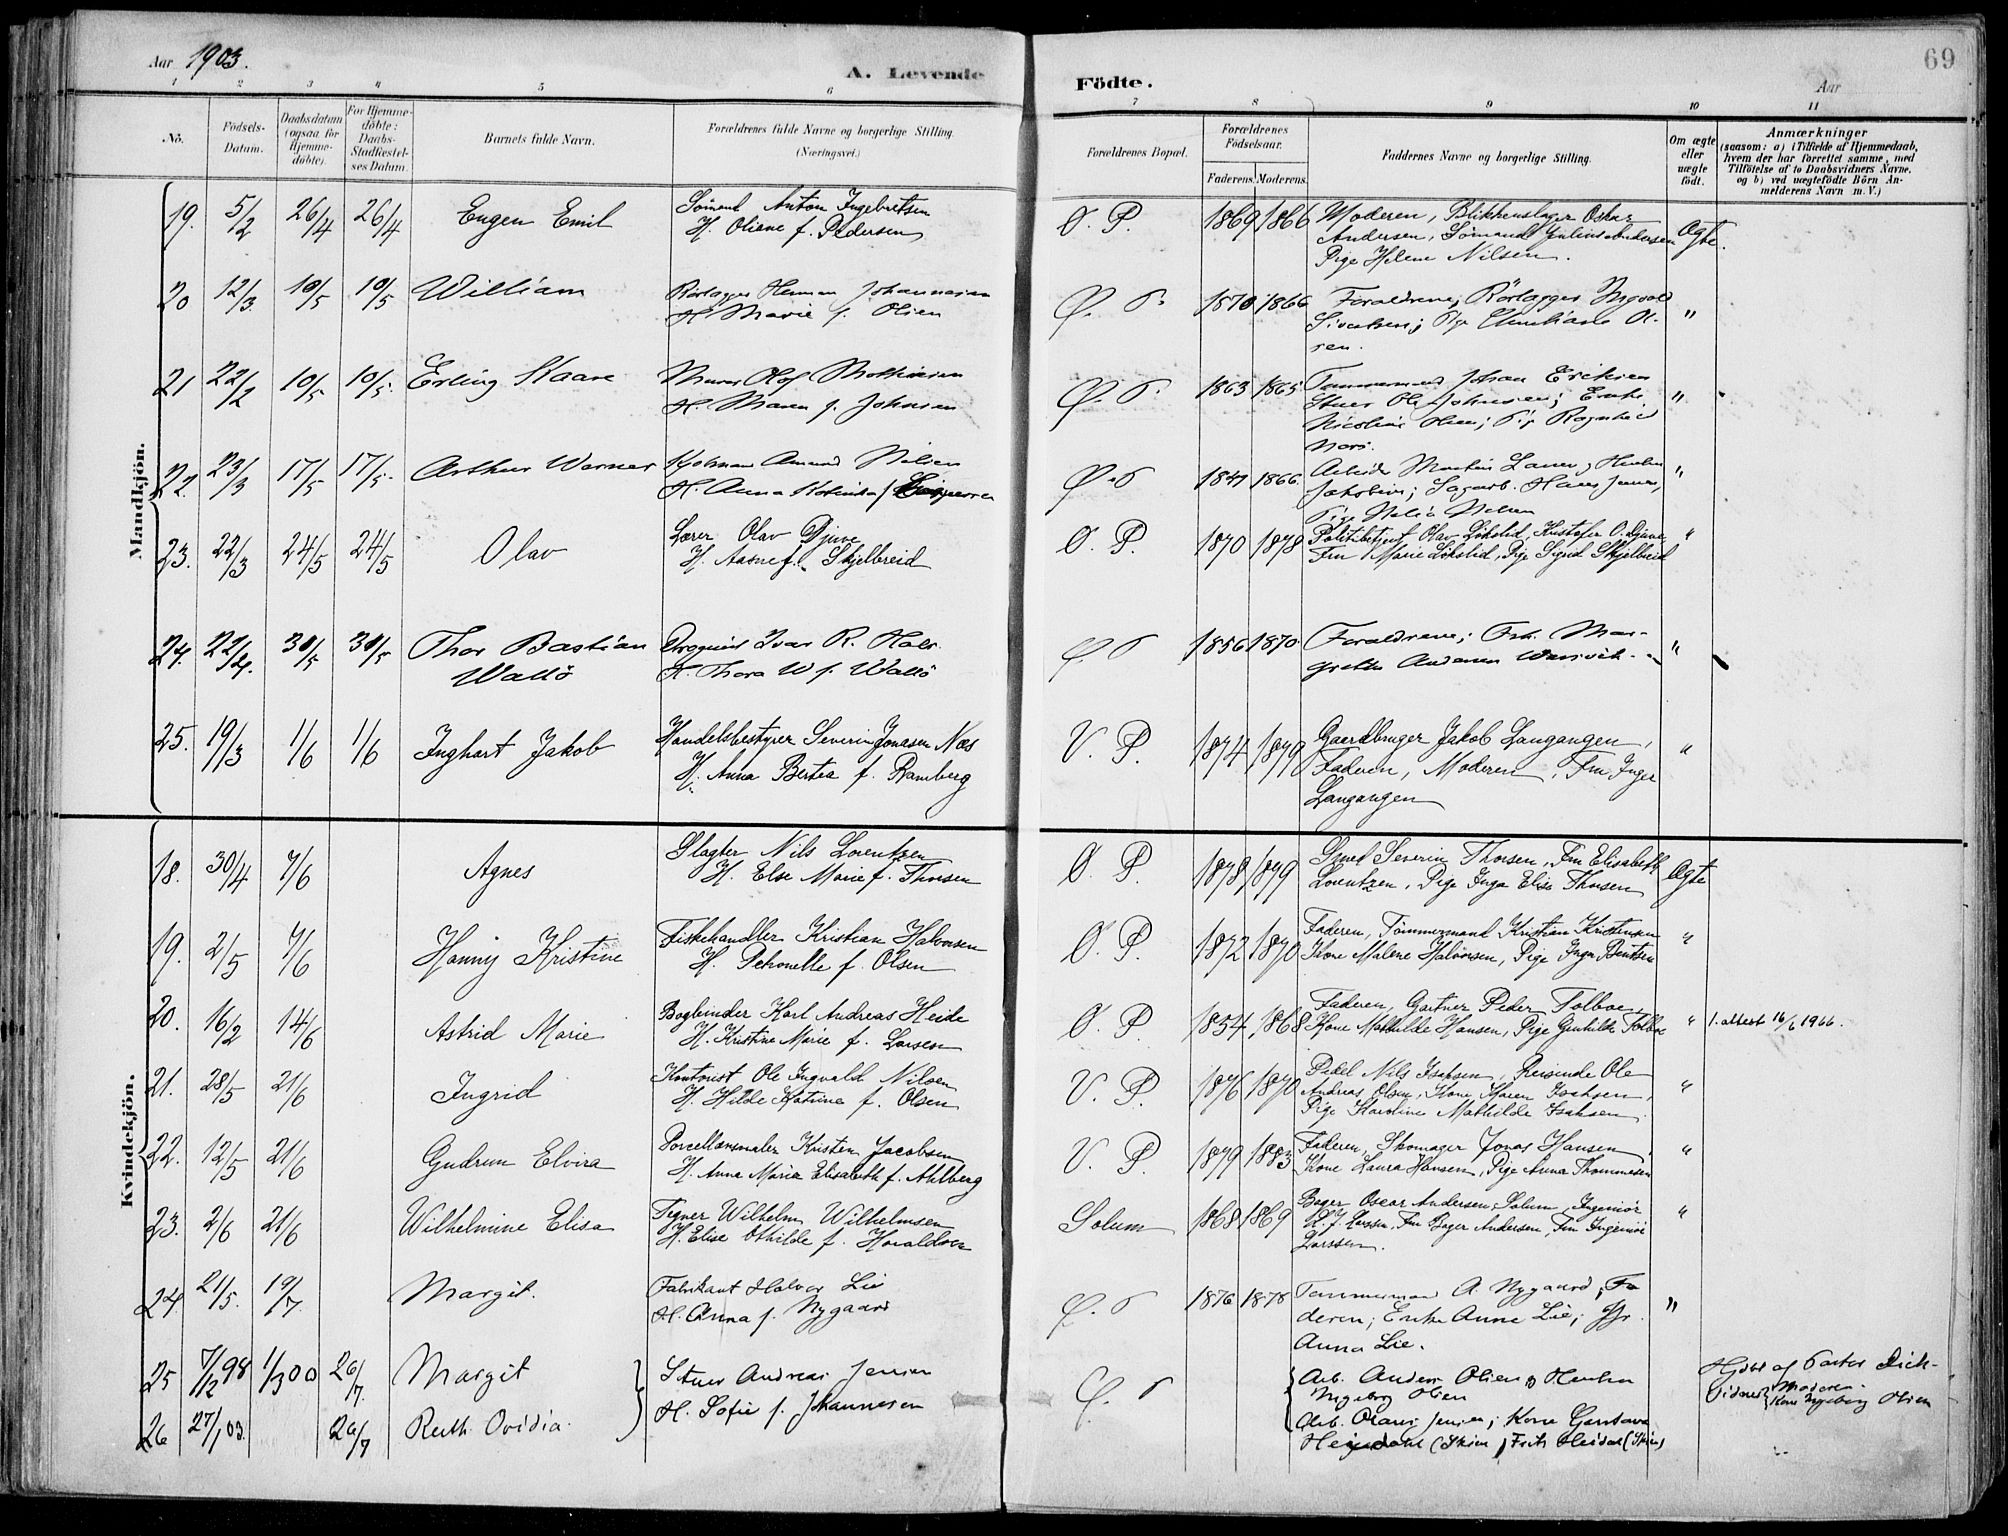 Aar 1903.
A. Levende Födte.
Aar
69
1 2 3 4 5 6 7 8 9 10 11
No.
Födsels-Datum.
Daabsdatum (ogsaa for Hjemmedöbte).
For Hjemmedöbte: Daabs-Stadfæstelses Datum.
Barnets fulde Navn.
Forældrenes fulde Navne og borgerlige Stilling. (Næringsvei.)
Forældrenes Bopæl.
Forældrenes Födselsaar.
Faderens. Moderens.
Faddernes Navne og borgerlige Stilling.
Om ægte eller uægte födt.
Anmærkninger
(saasom: a) i Tilfælde af Hjemmedaab, hvem der har forrettet samme, med Tilföielse af to Daabsvidners Navne, og b) ved uægtefödte Börn Anmelderens Navn m. V.)
Mandkjön.
19. 5/2 26/4 26/4 Eugen Emil
Sömand Anton Ingebritsen
H. Oliane f. Pedersen
Ø. P. 1869 1866
Moderen, Blikkenslager Oskar
Andersen, Sömand Julius Andersen
Pige Helene Nilsen.
Ægte.
20 12/3. 10/5 10/5 William
Rörlægger Herman Johannesen
H. Marie f. Olsen
Ø. P. 1870 1866
Forældrene, Rörlægger Ingvald
Sivertsen; Olsen.
"
21 22/2 10/5 10/5. Erling Kaare
Murer Olof Mathiesen
H. Maren f. Johnsen
Ø. P. 1863 1865
Tømmermand Johan Eriksen
Stuer Ole Johnsen; Enke
Nicoline Olsen; Ragnhild
"
22. 23/3 17/5 17/5. Arthur Werner
Amund Nilsen
H. Anna
Ø. P 1866
Arbeider Martin
Jakobsen; Hans Jensen,
Pige Nilsen
"
23. 22/3 24/5 24/5 Olav
Lærer Olav Djuve
H. Aasne f. Skjelbreid
Ø. P. 1870 1878
Politibetjent Olav Lökslid, Kristofer O. Djuve
Fru Marie Lökslid, Pige Sigrid Skjelbreid
"
24. 22/4. 30/5 30/5 Thor Bastian
Wallö
Ivar R. Holr.
H. Thora W f. Wallö
Ø. P 1856 1870
Forældrene; Frk. Margrethe Andersen
"
25. 19/3 1/6 1/6 Inghart Jakob
Handelsbestyrer Severin Jonasen Næs
H. Anna Bertea f. Ramberg
V. P. 1874 1879
Gaardbruger Jakob Langangen,
Faderen, Moderen, Fru Inger
Langangen
"
Kvindekjön.
18. 30/4 7/6 Agnes
Slagter Nils Lorentzen
H. Else Marie f. Thorsen
Ø. P. 1878 1879
Smed Severin Thorsen, Fru Elisabeth
Lorentzen, Pige Inga Elise Thorsen
Ægte
19. 2/5 7/6 Hanny Kristine
Fiskehandler Kristian Halvorsen
H. Petronelle f. Olsen
Ø. P. 1872 1870
Faderen, Tömmermand Kristian Kristensen
Kone Malene Halvorsen, Pige Inga Bentsen
"
20. 16/2 14/6 Astrid Marie
Bogbinder Karl Andreas Heide
H. Kristine Marie f. Larsen
Ø. P. 1854 1868
Faderen, Gartner Peder Folboe,
Kone Mathilde Hansen, Pige Folboe
" 1. attest 16/6 1966.
21. 28/5 21/6 Ingrid
Kontorist Ole Ingvald Nilsen
H. Hilde Katrine f. Olsen
V. P. 1876 1870
Pedel Nils Isaksen, Reisende Ole
Andreas Olsen, Kone Maren Isaksen,
Pige Karoline Mathilde Isaksen.
"
22. 12/5 21/6 Gudrun Elvira
Porcellænsmaler Kristen Jacobsen
H. Anna Maria Elisabeth f. Ahlberg
V. P. 1879 1883
Faderen, Skomager Jonas Hansen,
Kone Laura Hansen, Pige Anna Thommesen
"
23. 2/6 21/6 Wilhelmine Elisa
Tegner Wilhelm Wilhelmsen
H. Elise Othilde f. Haraldsen
Solum 1868 1869
Bager Oscar Andersen, Solum, Ingeniør
Larssen, Fru Bager Andersen, Fru Ingeniør
Larssen.
"
24. 21/5. 19/7. Margit.
Fabrikant Halvor Lie
H. Anna f. Nygaard
Ø. P 1876 1878
Tømmermand A. Nygaard, Faderen; Enke Anne Lie;
Anna Lie.
"
25 7/12 98 1/3 00 26/7. Margit
26 27/1 03. 26/7 Ruth Ovidia.
Stuer Andreas Jensen
H. Sofie f. Johannesen
Ø. P
Arb. Anders Olsen og Hustru
Ingeborg Olsen
Arb. Olaus Jensen; Kone Gustava
Heisdahl (Skien)
Hjdøbt af Pastor
Vidner: Moderen
Kone Ingeborg Olsen